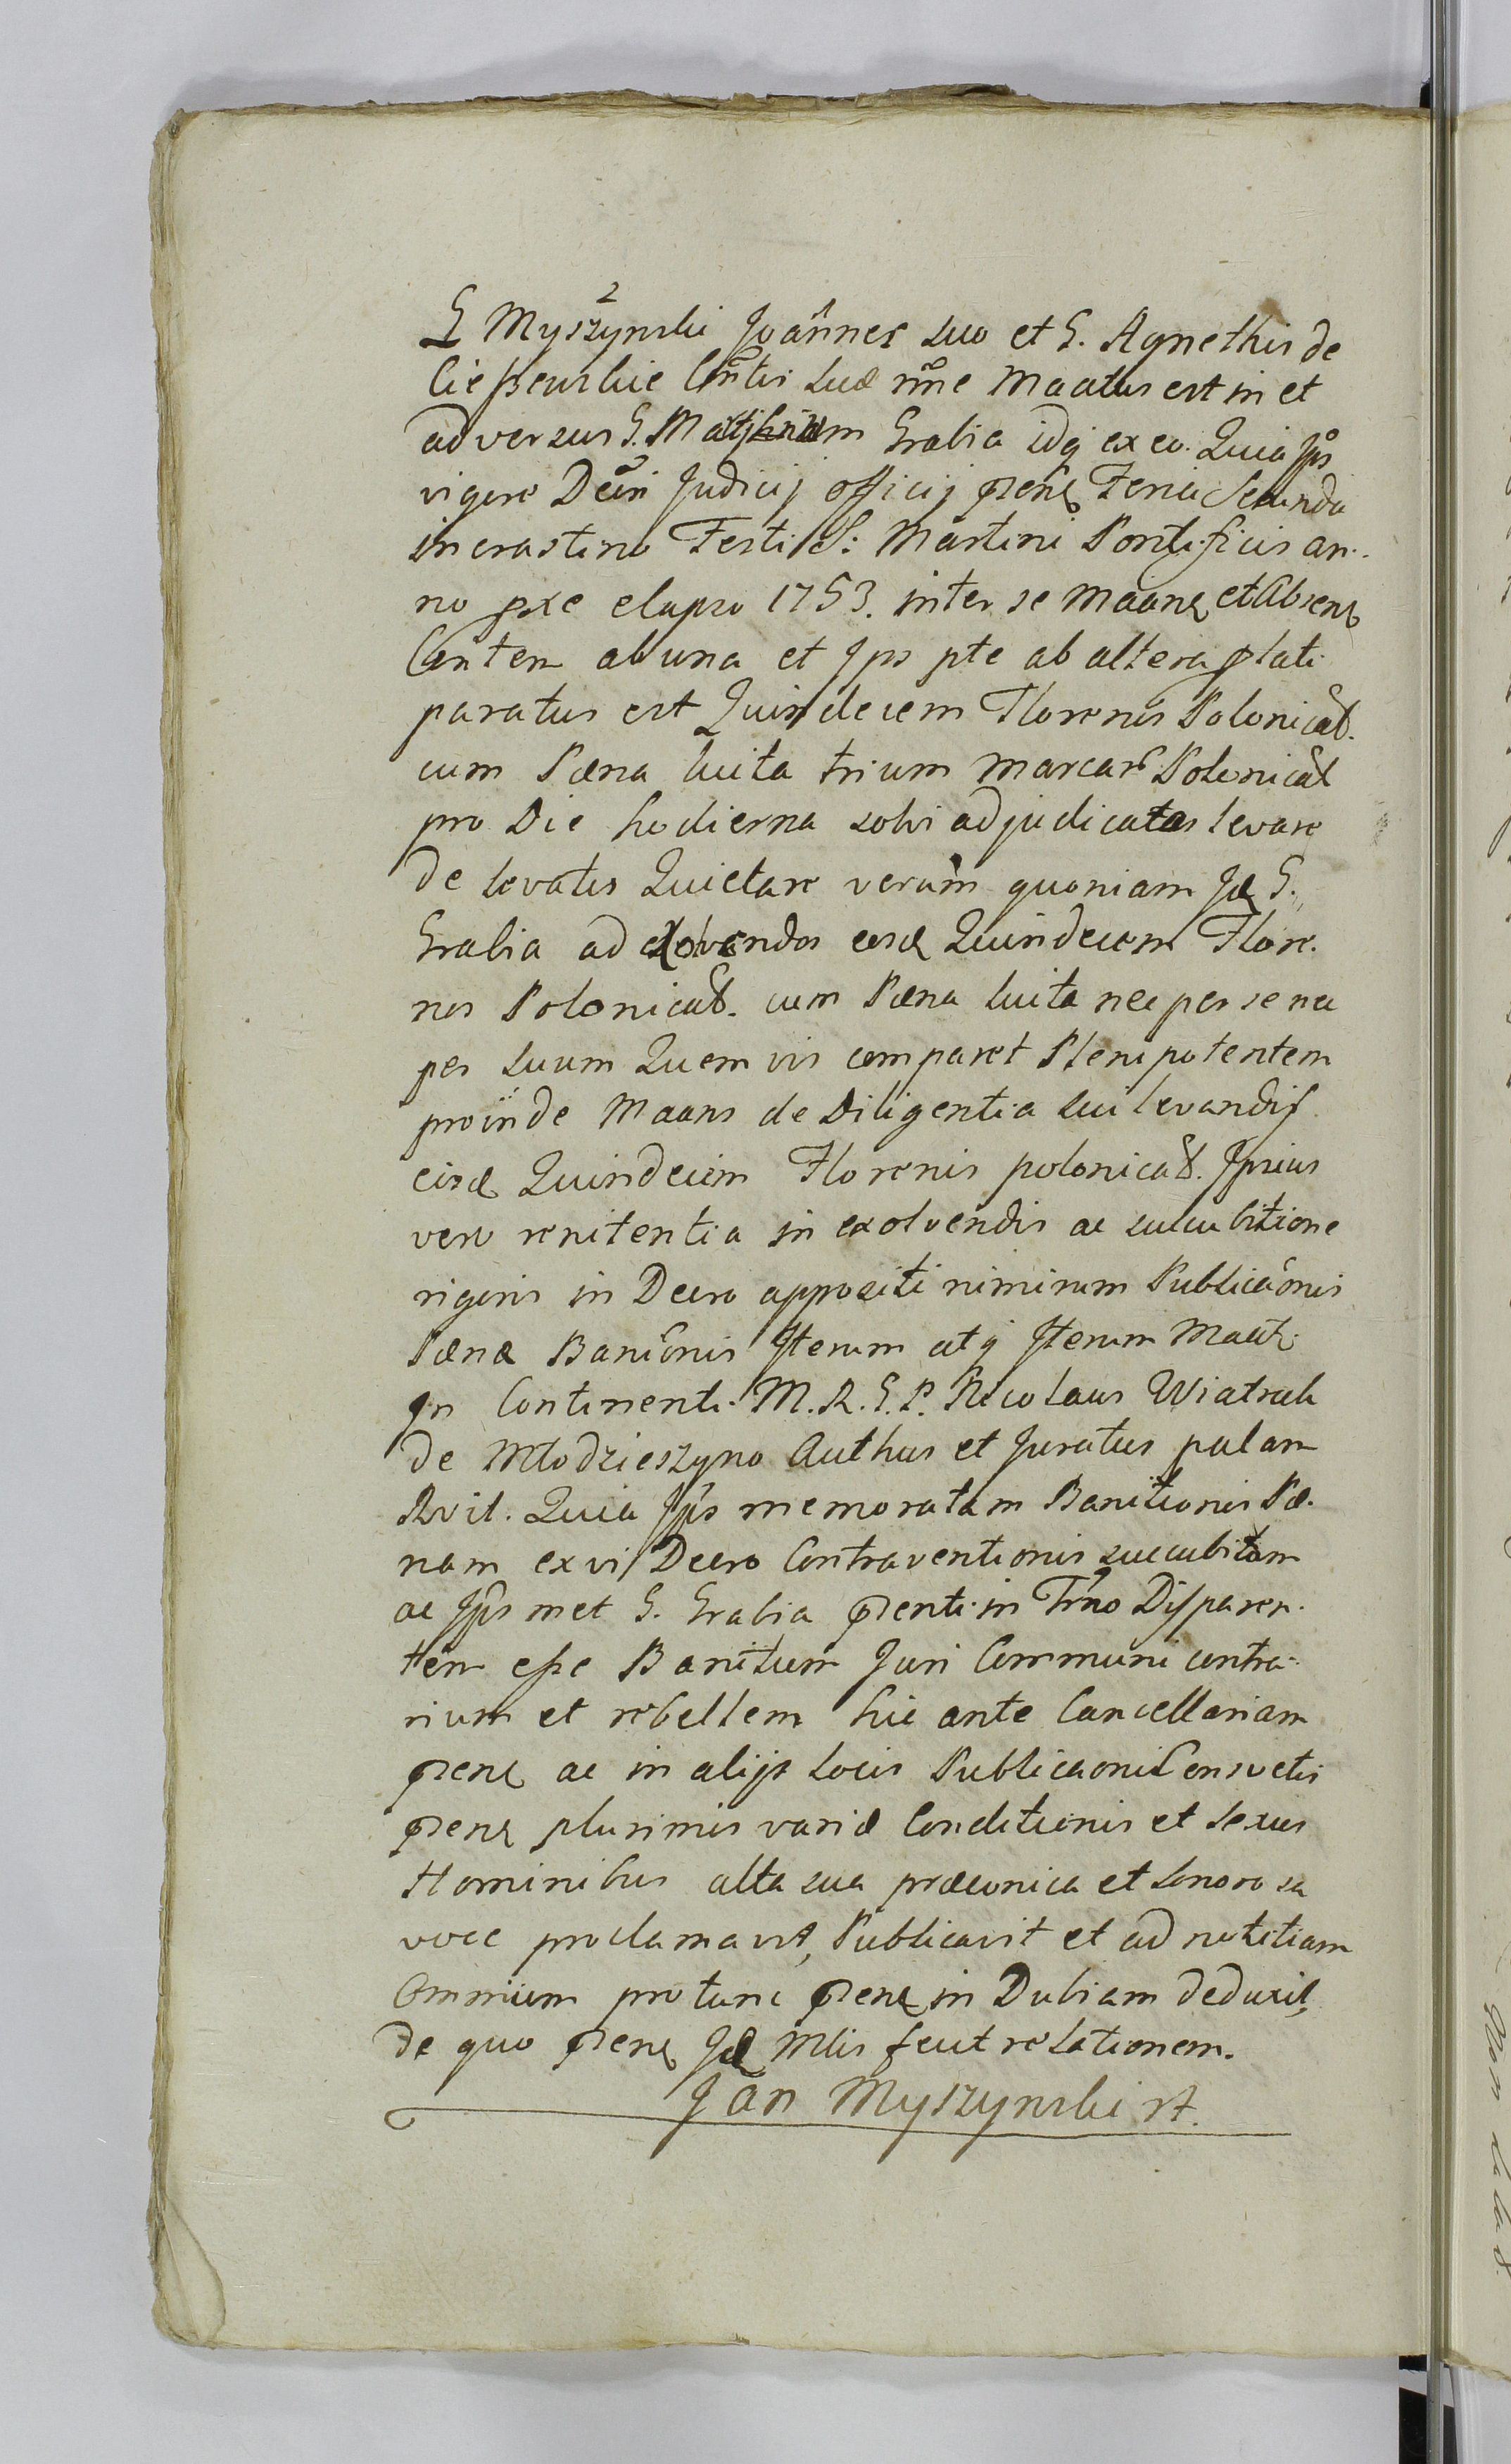 G Myszynski Joannes suo et G. Agnethis de
Cieszewskie Cntis suæ nne Maatus est in et
adversus G. Mathiam Grabia idq ex eo. Quia Jps
vigore Decri Judicij officij præns Feria Secunda
in crastino Festi S: Martini Pontificis an-
no pxe elapso 1753. inter se Maans et Absens
Cantem ab una et Jps pte ab altera plati
paratus est Quindecem Florenos Polonical.
cum Pæna luita trium Marcar Polonical
pro Die hodierna solvi adjudicatas levare
de levatis Quietare verum quoniam Jd G.
Grabia ad exolvendos eosd Quindecem Flore-
nos Polonical. cum Pæna luita nec per se nec
per suum Quem vis comparet Plenipotentem
proinde Maans de Diligentia sui levandis
eisd Quindecim Florenis polonical. Jpsius
vero renitentia in exolvendis ac sucubitione
rigoris in Decro appositi nimirum Publicaonis
Pænæ Banionis Jterum atq Jterum Maatr.
Jn Continenti. M. R. G. P. Nicolaus Wiatrak
de Mlodzieszyno Authus et Juratus palam
Rvit. Quia Jps memoratam Banitionis Pæ-
nam ex vi Decro Contraventionis succubitam
ac Jpsmet G. Grabia præenti in Trno Disparen-
tem esse Banitum Juri Communi contra-
rium et rebellem hic ante Cancellariam
præns ac in alijs Locis Publicaoni Consvetis
præns plurimis variæ Conditionis et sexus
Hominibus alta sua præconica et sonorosa
voce proclamavit, Publicavit et ad notitiam
Omnium pro tunc præns in Dubiam deduxit,
de quo præns Jd Mlis fecit relationem.
Jan Myszynski